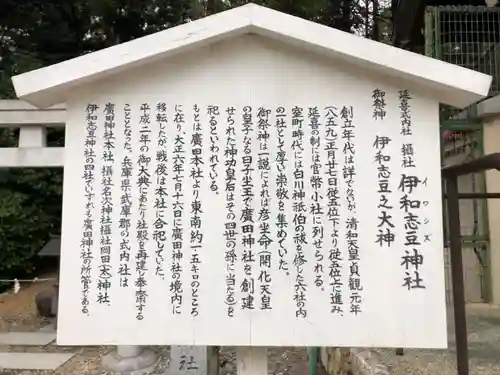 延喜式内社 摂社 伊和志豆神社
イワシズ
御祭神 伊和志豆之大神
創立年代は詳でないが、清和天皇貞観元年
(八五九)正月廿七日従五位下より従五位上に進み、
延喜の制には官幣小社に列せられる。
室町時代には白川神祇伯の祓を修した六社の内
の一社として厚く崇敬を集めていた。
御祭神は一説によれば彦坐命(開化天皇
の皇子なる日子坐王)で廣田神社を創建
せられた神功皇后はその四世の孫に当たる)を
祀るといわれている。
もとは廣田本社より東南約一・五キロのところ
に在り、大正六年七月十六日に廣田神社の境内に
移転したが、戦後は本社に合祀していた。
平成二年の御大典にあたり社殿を再興し奉斎する
こととなった。兵庫県武庫郡の式内社は
廣田神社本社、摂社名次神社、摂社岡田(太)神社
伊和志豆神社の四社でいずれも廣田神社の所管である。
社